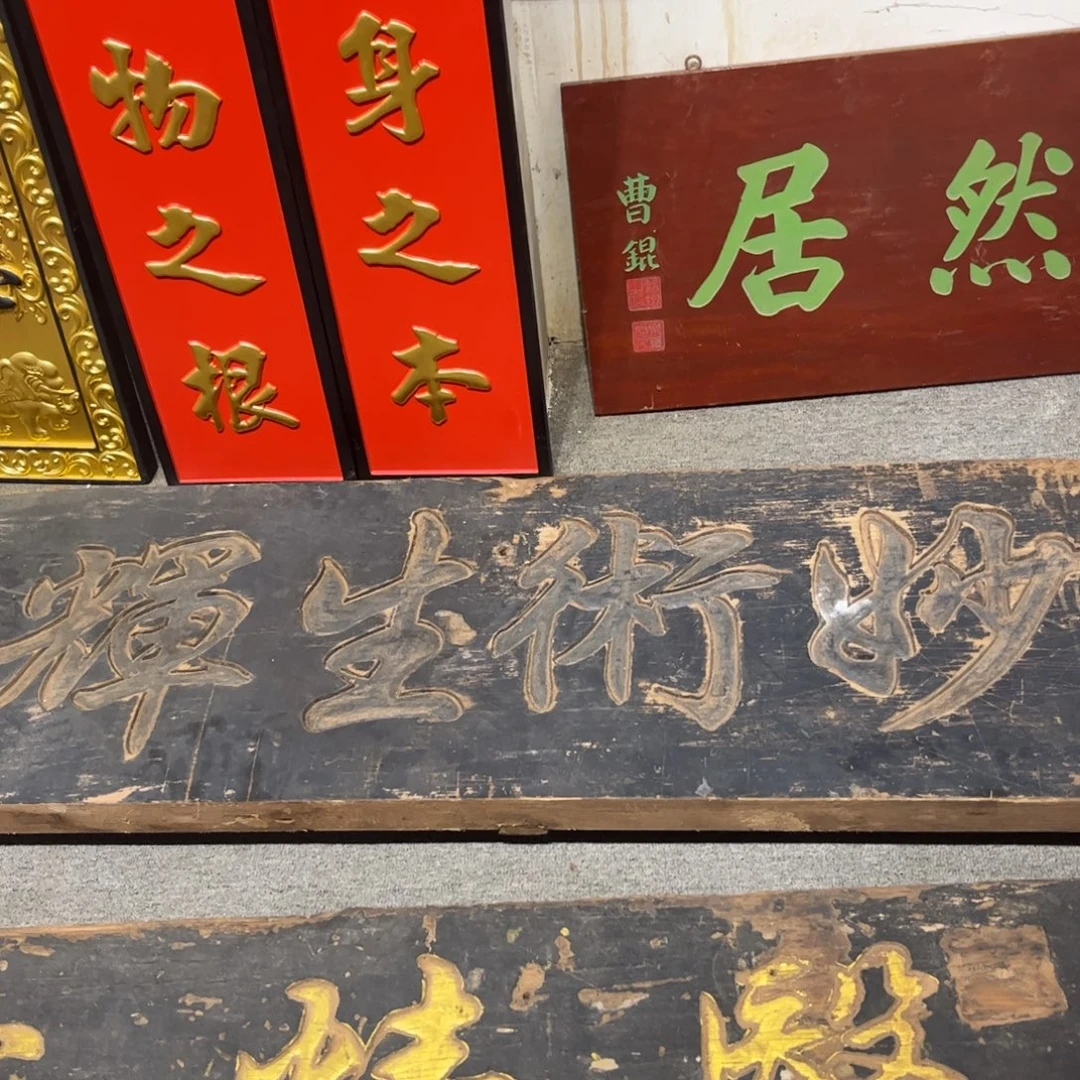 身之本
物之根
然居
曹錕
妙術生輝